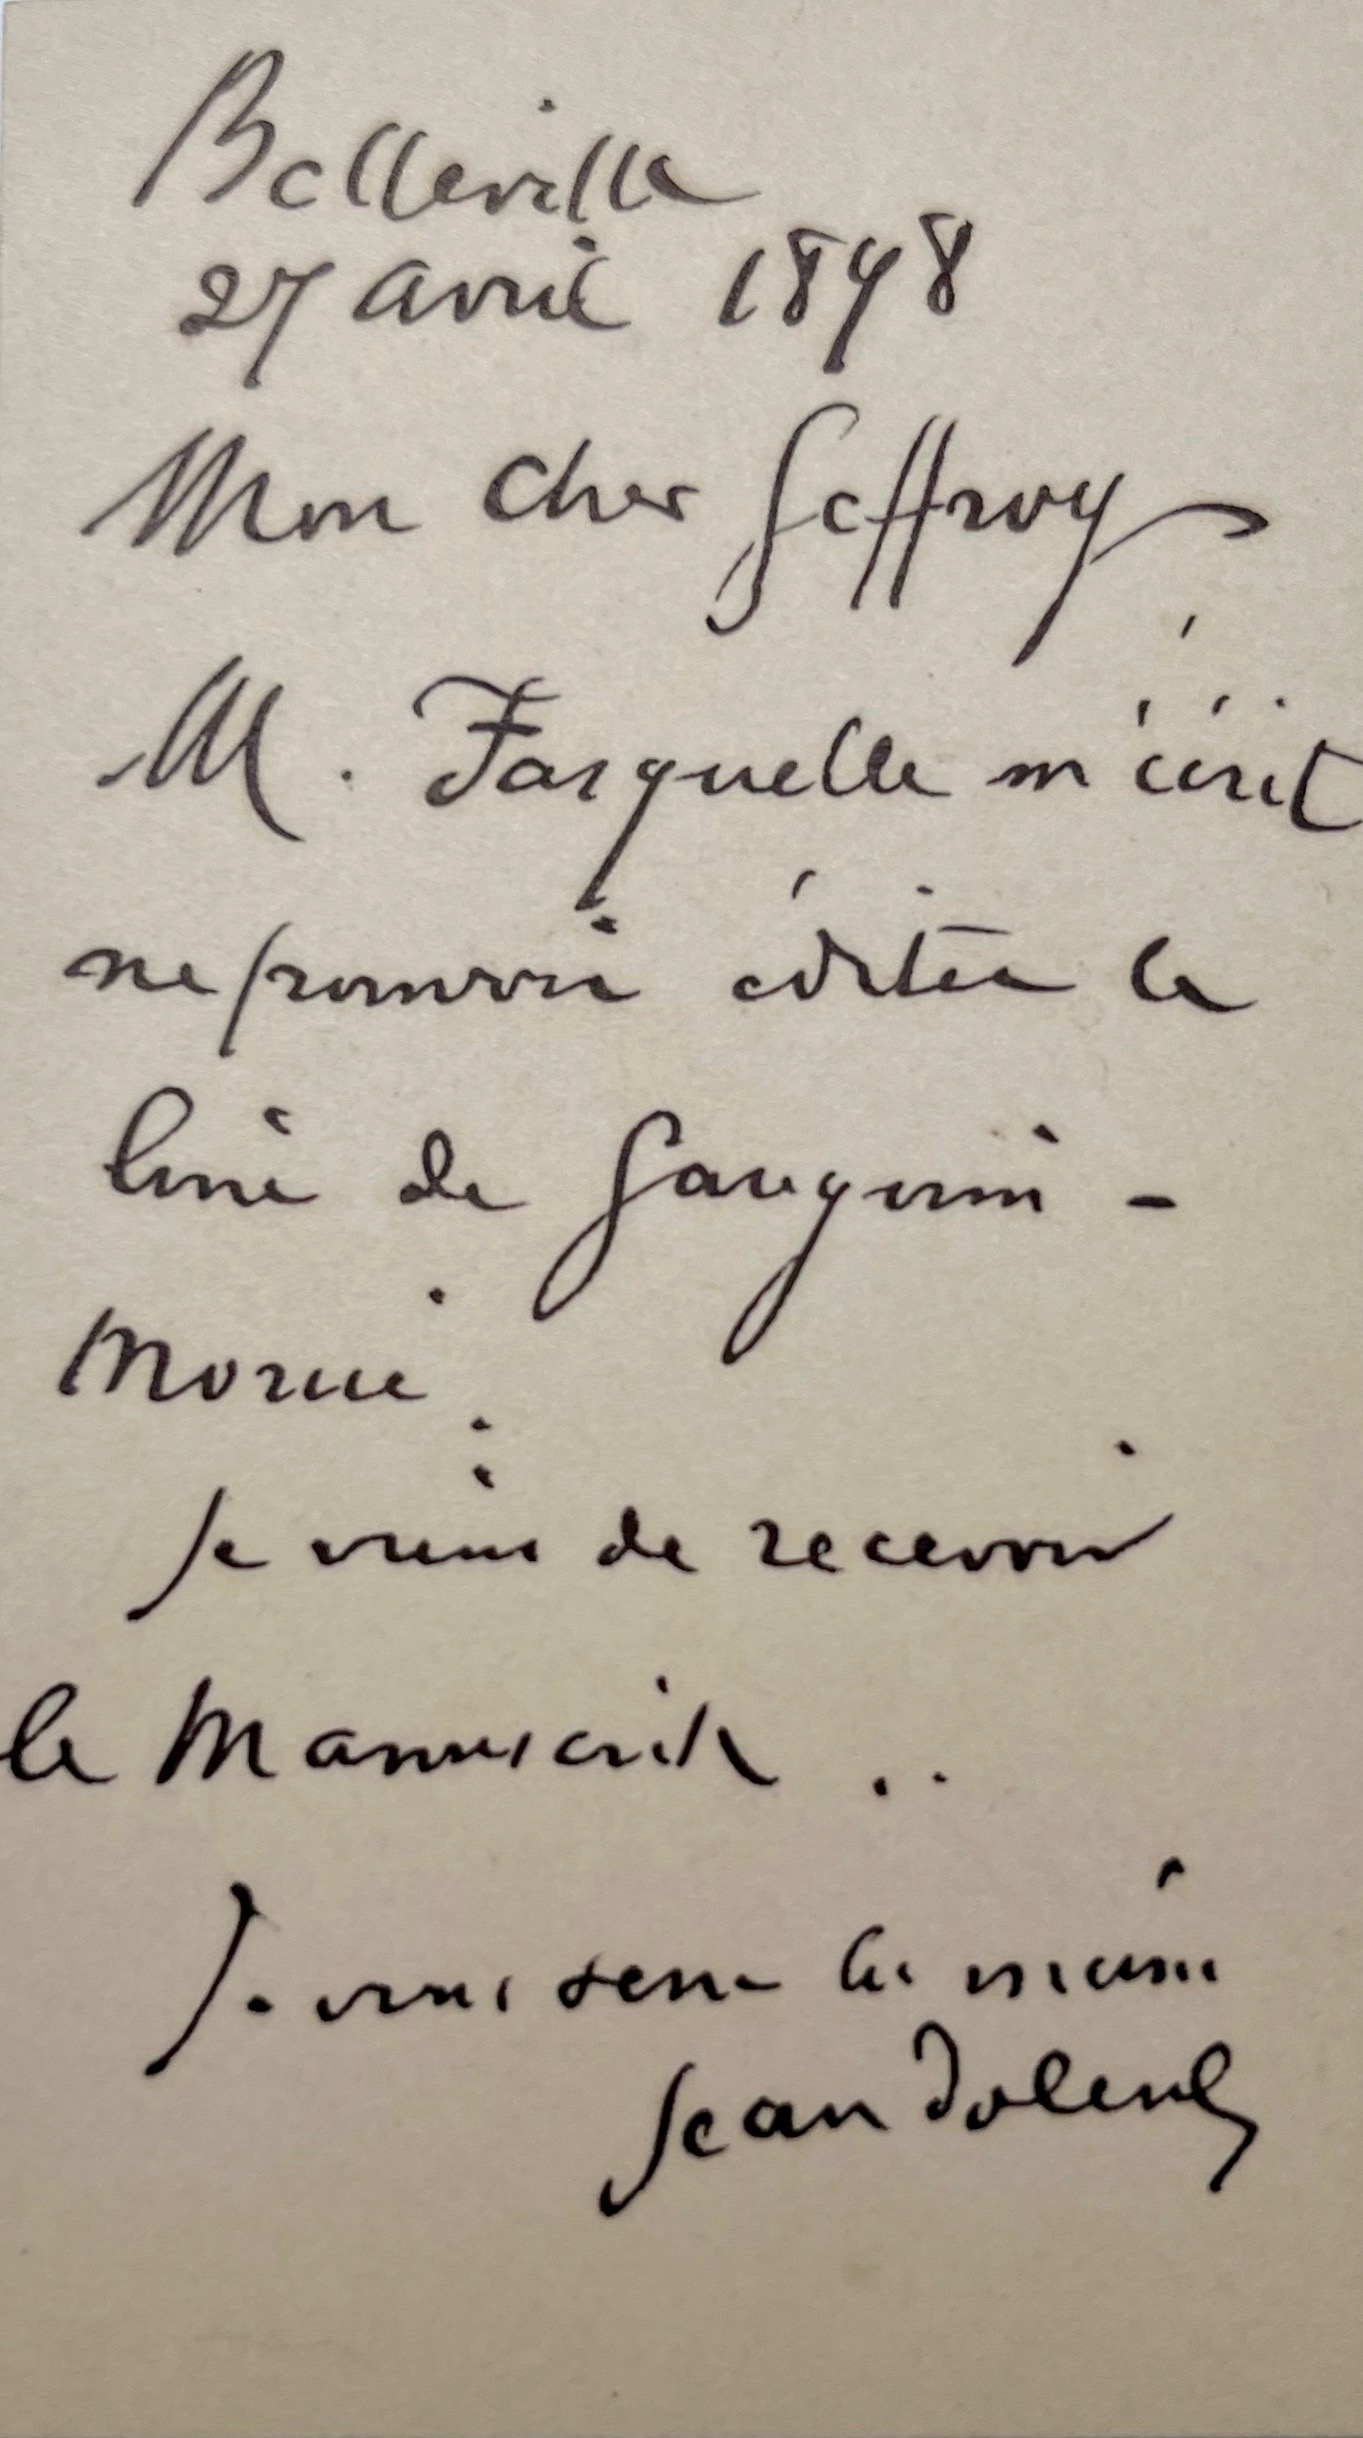 Belleville
27 avril 1898
Mon cher Geffroy
M. Fasquelle m'écrit
ne pouvoir éditer le
livre de Gauguin -
Morice.
Je viens de recevoir
le Manuscrit ..
Je vous serre les mains
Jean Dolent